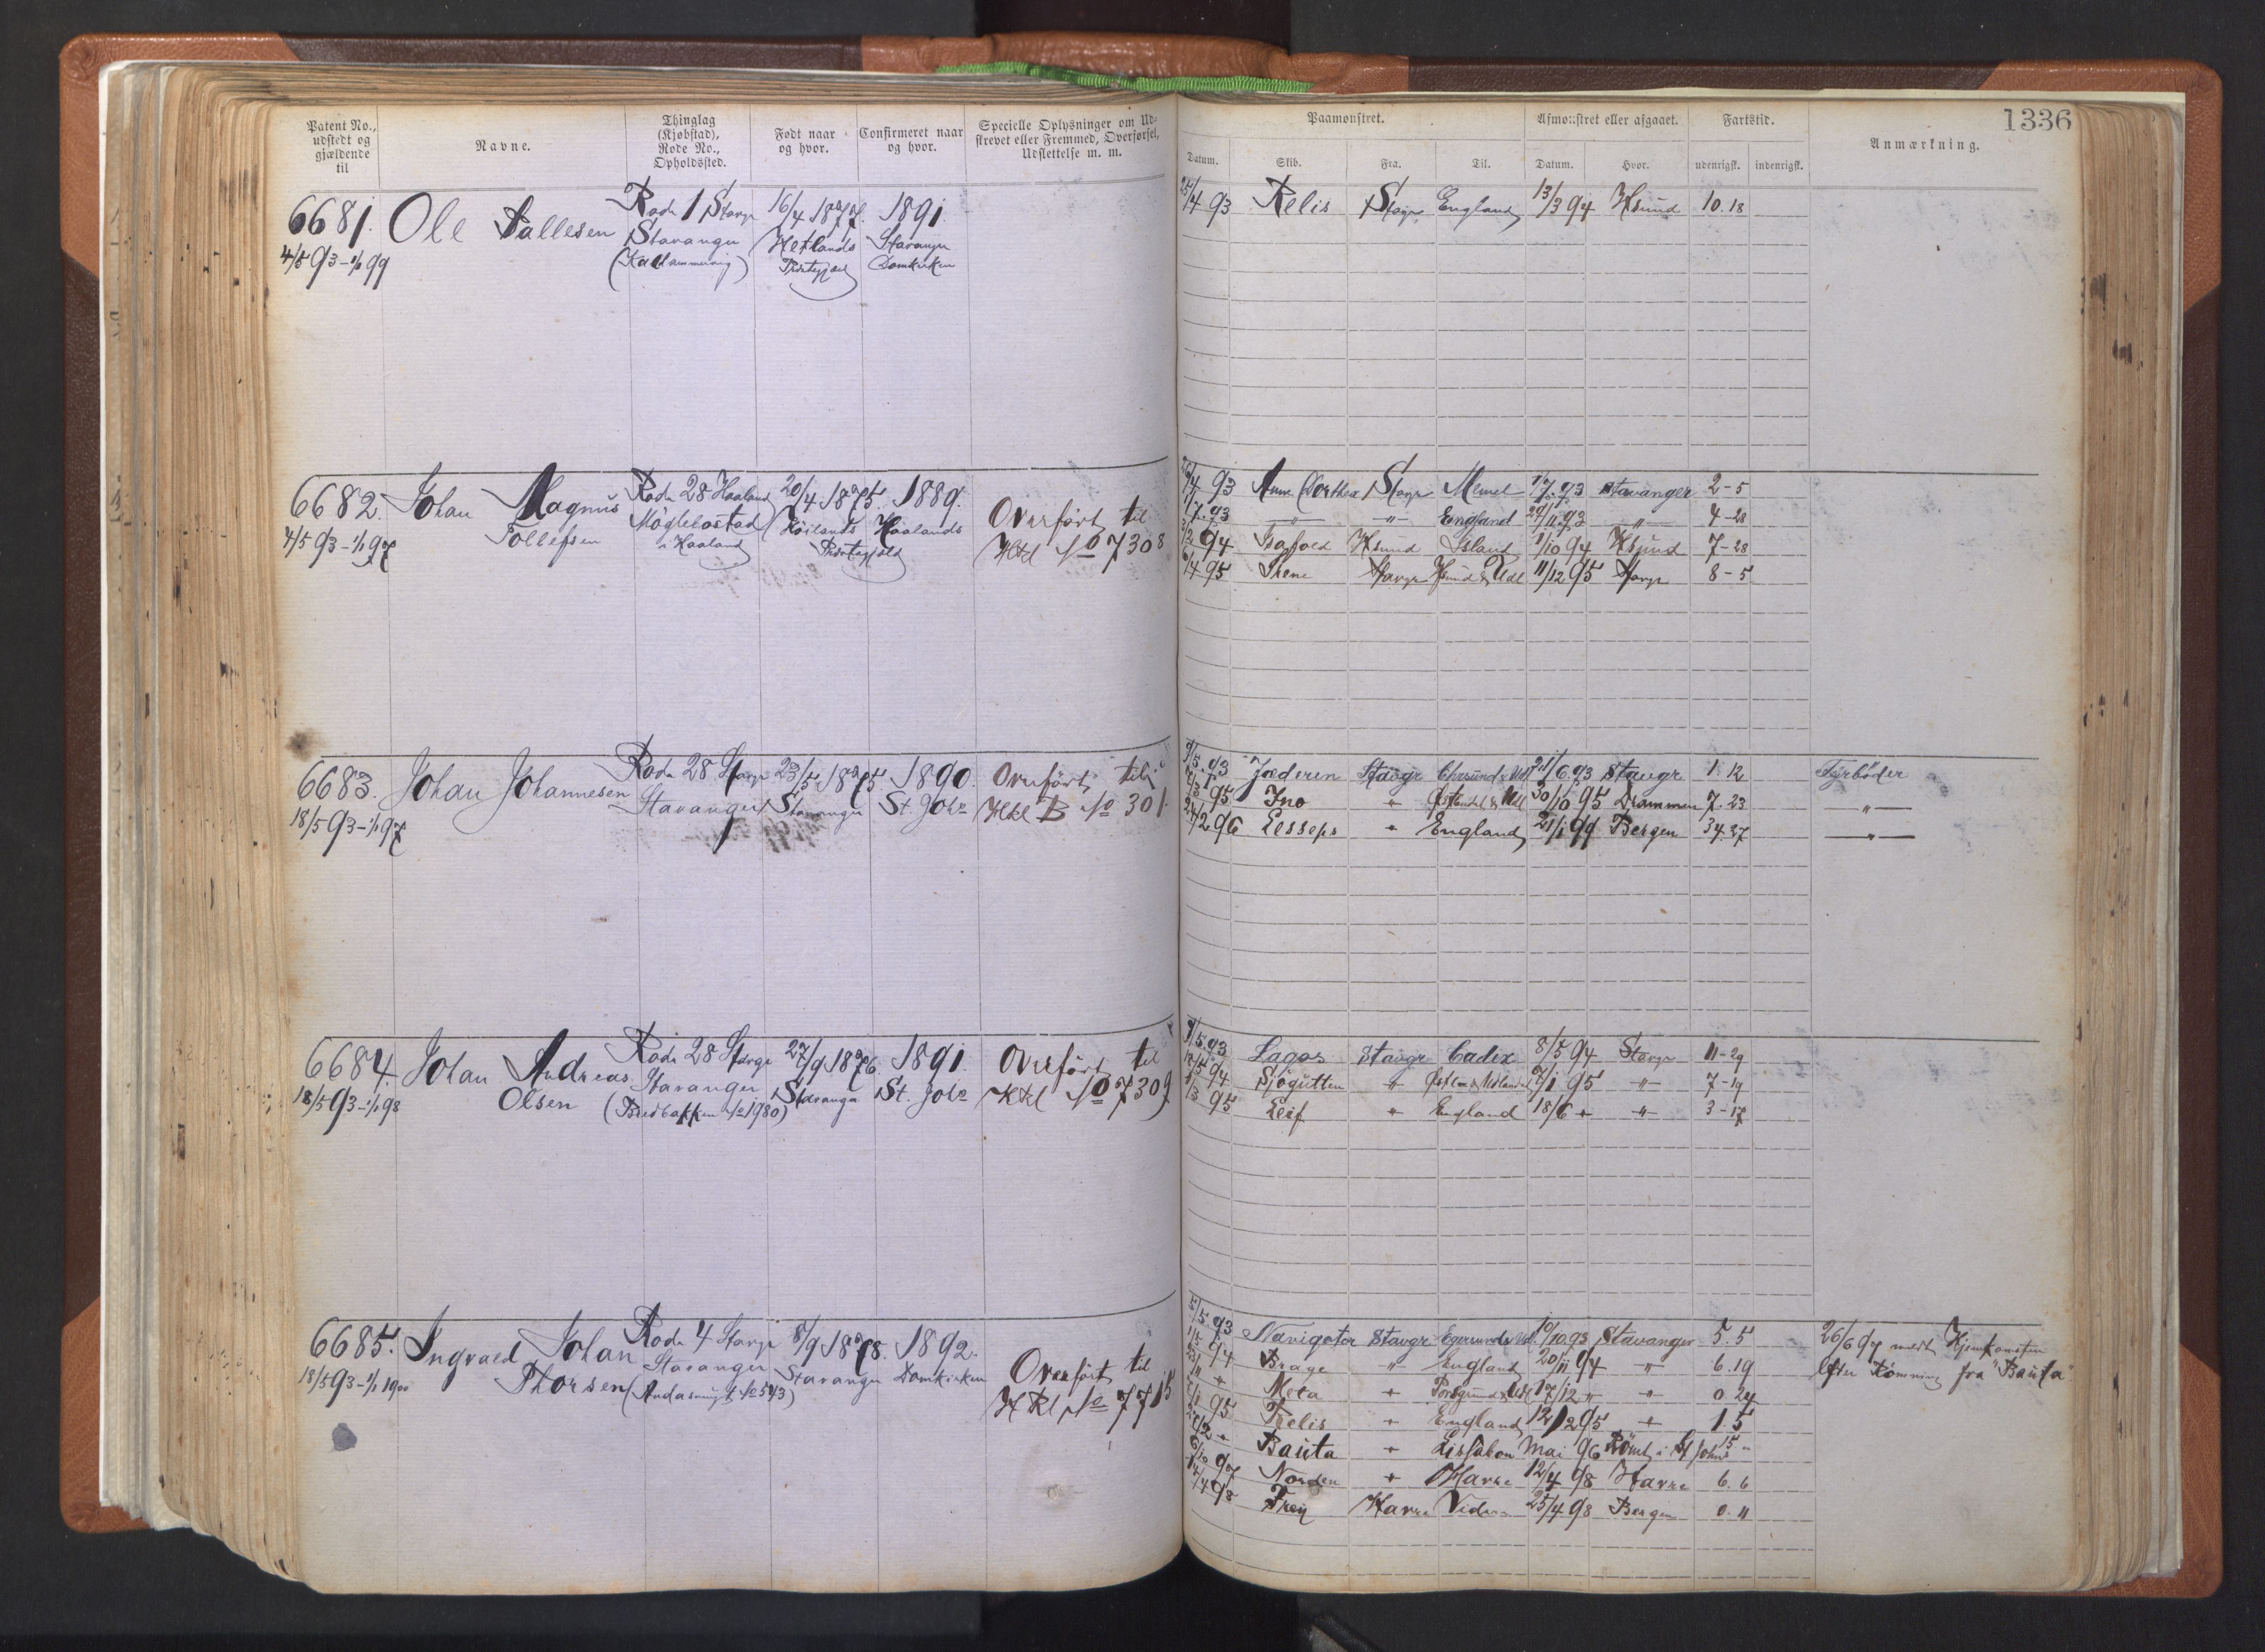 1336
Patent No., udstedt og gjældende til
Navne.
Thinglag (Kjøbstad), Rode No., Opholdssted.
Født naar og hvor.
Confirmeret naar og hvor.
Specielle Oplysninger om Udskrevet eller Fremmed, Overførsel, Udslettelse m. m.
Paamønstret.
Afmønstret eller afgaaet.
Fartstid.
Anmærkning.
Datum. Skib. Fra. Til. Datum. Hvor. udenrigsk. indenrigsk.
6681. Ole Aallesen Rode 1 Stavgr 16/4 1877. 1891.
4/5 93 - 1/1 99 Stavanger Hetlands Stavanger
Præstegjeld Domkirken
25/4 93 Relis Stavgr England 13/3 94 Hsund 10.18
6682. Johan Magnus Rode 28 Haaland 20/4 1875. 1889.
4/5 93 - 1/1 97 Tollefsen Høilands Haalands Overført til
i Haaland Præstegjeld Hkl No 7308
93 Anne Dorthea Stavgr Memel 1/7.93 Stavanger 2-5
1/7.93 — " — — " — England 29/11.93 — " — 4-28
94 Hsund Island 1/10 94 Hsund 7-28
95 Irene Stavgr Hsund & Udl 11/12 95 Stavgr 8-5
6683. Johan Johannesen Rode 28 Stavgr 23/5 1875. 1890. Overført til
18/5 93 - 1/1 97 Stavanger Stavanger St. Johs Hkl B No 301.
9/5 93 Jæderen Stavgr Chrsund & Udl 21/6.93 Stavgr 1.12 Fyrbøder
95 Ino " Østlandet & Udl 30/10 95 Drammen 7.23 — " —
2 96 Lesseps " England 21/1 99 Bergen 34.27 — " —
6684. Johan Andreas Rode 28 Stavgr 27/9 1876. 1891. Overført til
18/5 93 - 1/1 98 Olsen Stavanger Stavanger St. Johs Hkl No 7309
(Bredbakken No 1980)
9/5 93 Lagos Stavgr Cadix 8/5 94 Stavgr 11-29
94 Sjøgutten " 1 95 " 7-19
95 Leif " England 18/6 " " 3-17
6685. Ingvald Johan Rode 4 Stavgr 8/9 1878. 1892. Overført til
18/5 93 - 1/1 1900 Thorsen Stavanger Stavanger Domkirken H Kl No 7715
(Andasmugt No 543)
5/5 93 Navigator Stavgr Egersund & Udl. 10/10.93 Stavanger 5.5 26/6 97 meldt Hjemkomsten
94 Brage " England 20/11 94 " 6.19 efter Rømning fra "Bauta"
Meta " Porsgrund & Udl 17/12 " " 0.24
95 " England 12/12 95 " 1.5
Bauta " Lissabon Mai 96 Rømt i St Johns
97 Norden " Havre 12/4 98 Havre 6.6
98 Frey Havre 25/4 98 Bergen 0.11